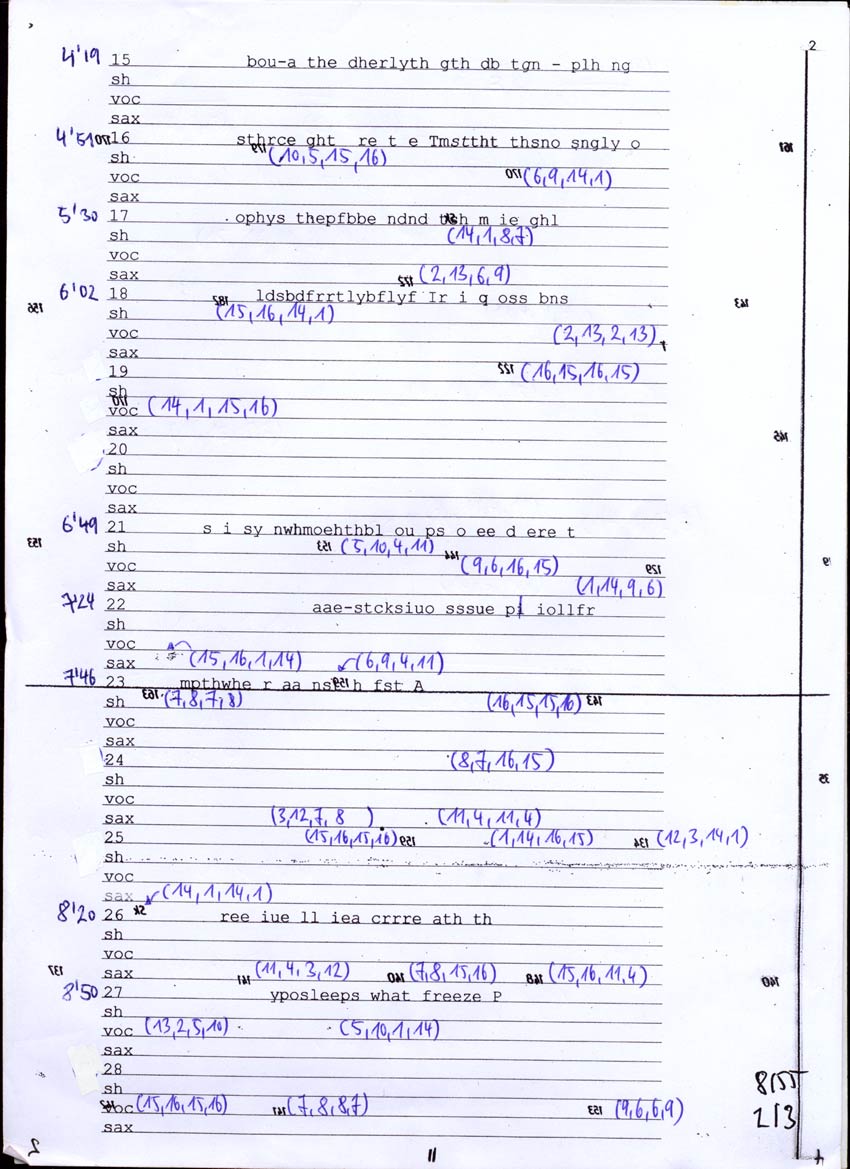 2
4'19 15 bou-a the dherlyth gth db tgn - plh ng
sh
voc
sax
4'51 16 sthrce ght re t e Tmsttht thsno sngly o
sh (10,5,15,16)
voc 170 (6,9,14,1)
sax
5'30 17 ophys thepfbbe ndnd tsh m ie ghl
sh (14,1,8,7)
voc
sax 122 (2,13,6,9)
6'02 18 ldsbdfrrtlybflyf Ir i q oss bns
sh (15,16,14,1)
voc (2,13,2,13)
sax
19 122 (16,15,16,15)
sh
voc (14,1,15,16)
sax
20
sh
voc
sax
6'49 21 s i sy nwhmoehthbl ou ps o ee d ere t
sh 153 (5,10,4,11)
voc 144 (9,6,16,15) 129
sax (1,14,9,6)
7'24 22 aae-stcksiuo sssue p iollfr
sh
voc
sax (15,16,1,14) (6,9,4,11)
7'46 23 mpthwhe r aa ns h fst A
sh 163 (7,8,7,8) (16,15,15,16) 143
voc
sax
24 (8,7,16,15)
sh
voc
sax (3,12,7,8) (11,4,11,4)
25 (15,16,15,16) 159 (1,14,16,15) 134 (12,3,14,1)
sh
voc
sax (14,1,14,1)
8'20 26 ree iue ll iea crrre ath th
sh
voc
sax 141 (11,4,3,12) 140 (7,8,15,16) 148 (15,16,11,4)
8'50 27 yposleeps what freeze P
sh
voc (13,2,5,10) (5,10,1,14)
sax
28
sh
voc (15,16,15,16) 147 (7,8,8,7) 153 (9,6,6,9)
sax
2 11 4